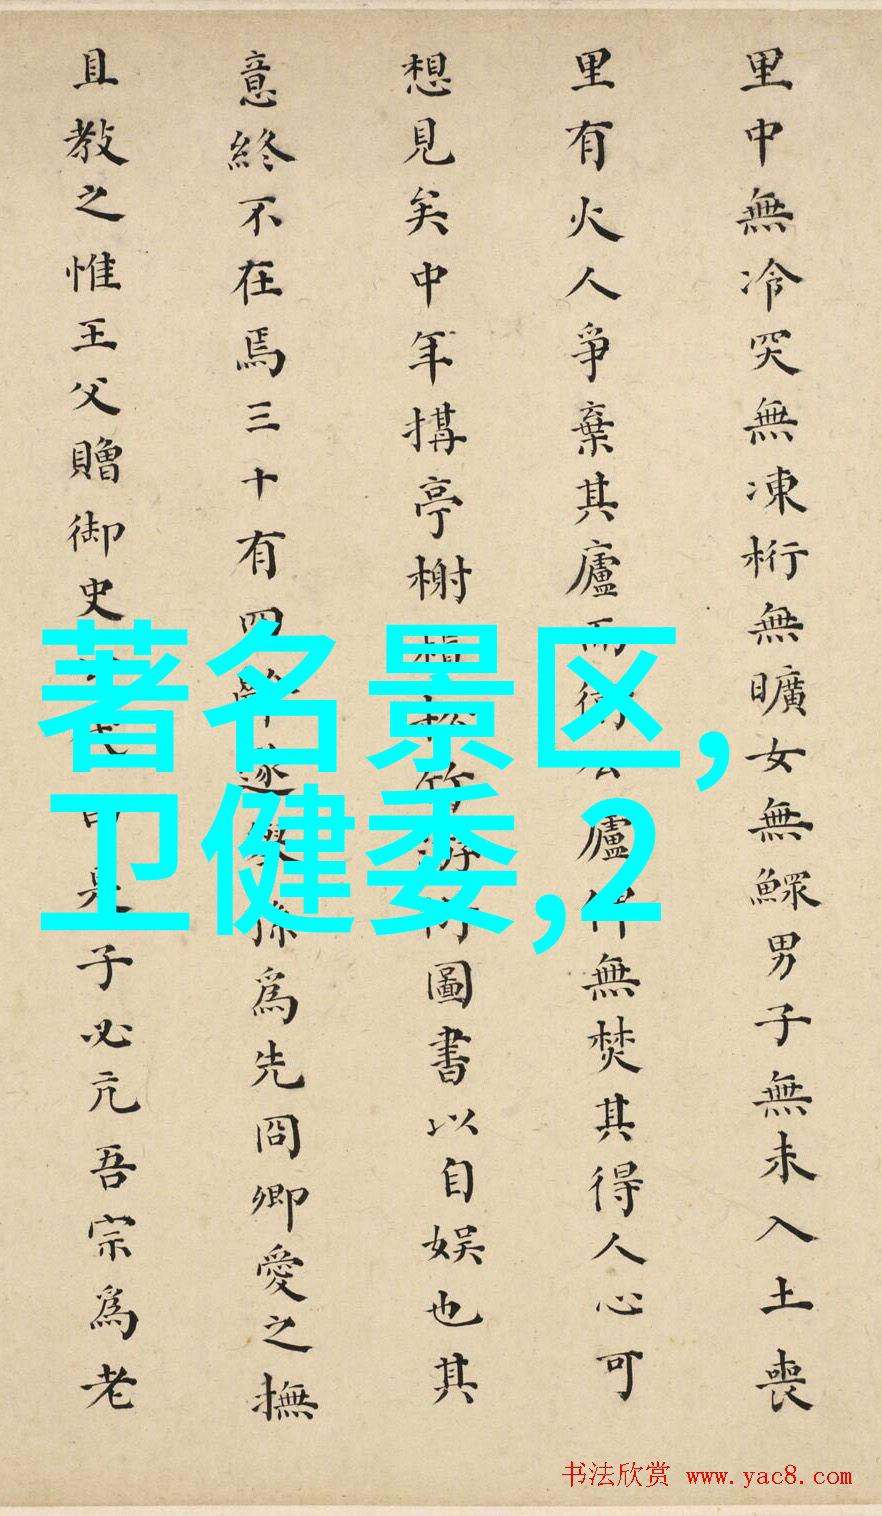 里中無冷突無凍桁無曠女無鰥男子無未入土喪
里有火人爭棄其廬而衛公廬俾無焚其得人心可
想見矣中年搆亭榭植松竹游以圖書以自娛也其
意終不在焉三十有四辭逐興孫為先冏卿愛之撫
且教之惟王父贈御史
是子必亢吾宗為老
著名景区,
卫健委,2
书法欣赏 www.yac8.com